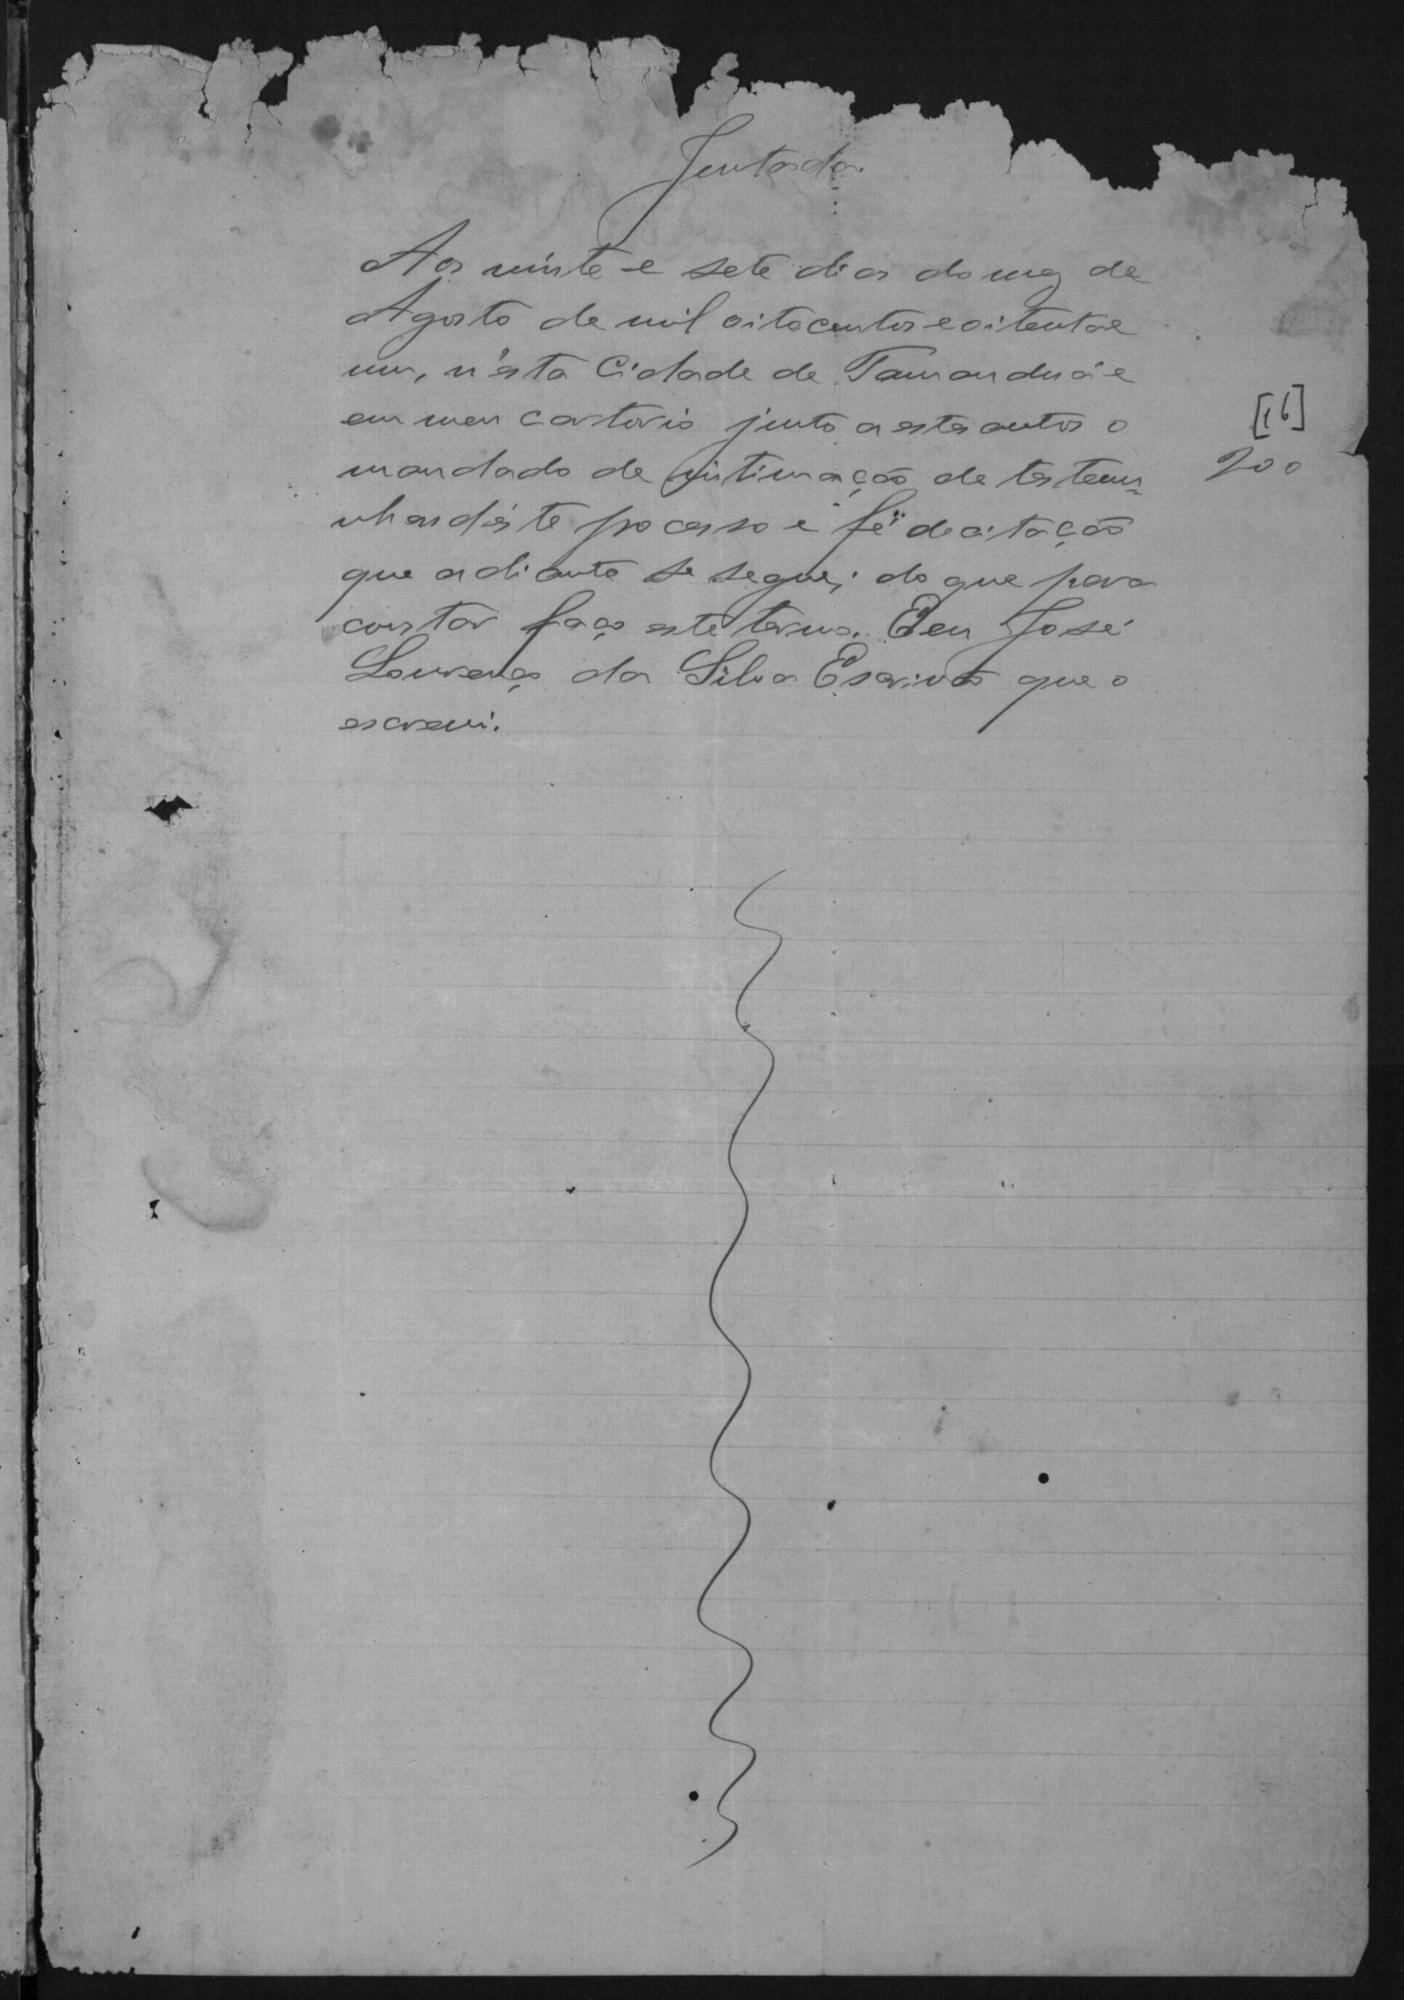 Juntada.
Aos vinte e sete dias do mez de
Agosto de mil oitocentos e oitenta e
um, n'esta Cidade de Tamanduá e
em meu cartorio junto a estes autos o
[16]
mandado de intimação de testemu-
200
nhas d'este processo e fé de citação
que adiante se segue; do que para
constar faço este termo. Eu José
Lourenço da Silva Escrivão que o
escrevi.